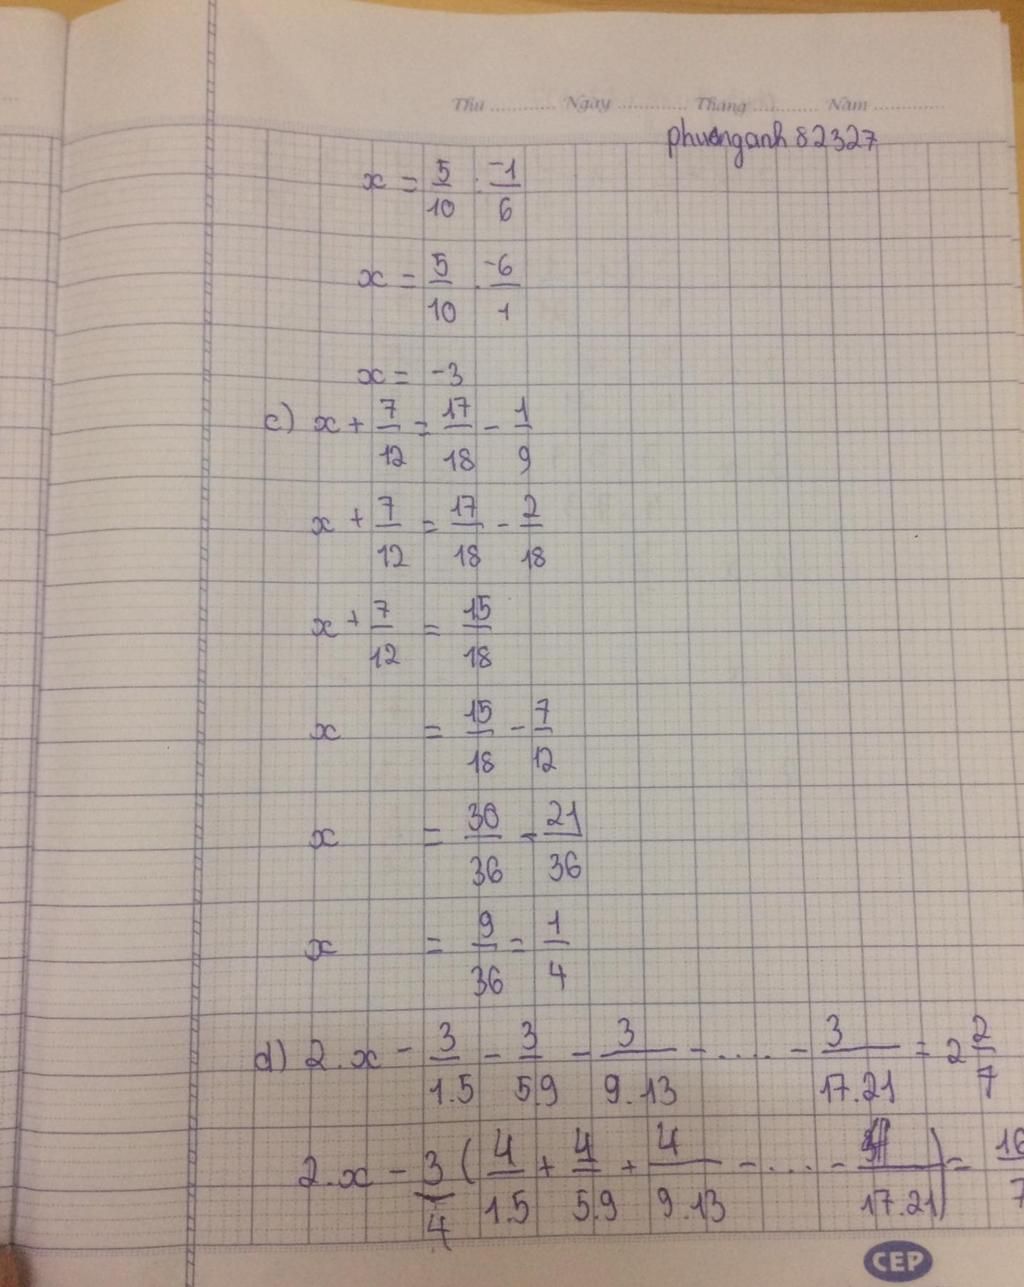 Thứ ............ Ngày ............ Tháng ............ Năm ............
phuonganh82327
x = 5/10 : -1/6
x = 5/10 . -6/1
x = -3
c) x + 7/12 = 17/18 - 1/9
x + 7/12 = 17/18 - 2/18
x + 7/12 = 15/18
x = 15/18 - 7/12
x = 30/36 - 21/36
x = 9/36 = 1/4
d) 2.x - 3/1.5 - 3/5.9 - 3/9.13 - .... - 3/17.21 = 2 2/7
2.x - 3/4 ( 4/1.5 + 4/5.9 + 4/9.13 - .... - 4/17.21 ) = 16/7
CEP